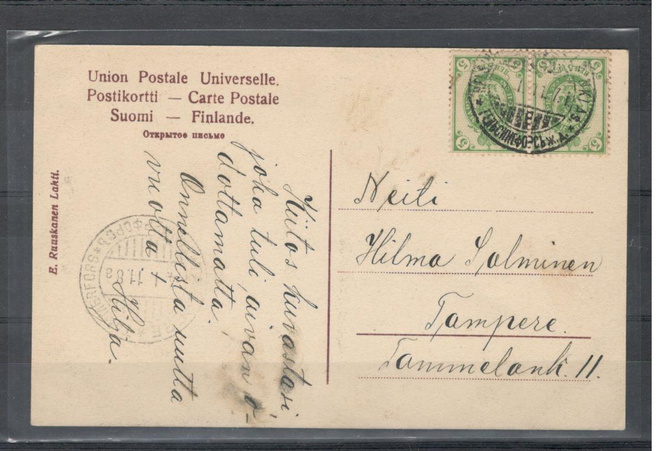 Union Postale Universelle.
Postikortti — Carte Postale
Suomi — Finlande.
Открытое письмо
E. Ruuskanen Lahti.
Kiitos kuvastasi
joka tuli, aivan o-
dottamatta.
Onnellista uutta
vuotta +
Hilja.
Neiti
Hilma Salminen
Tampere.
Tammelank. 11.
5 5
5 5
11.8a